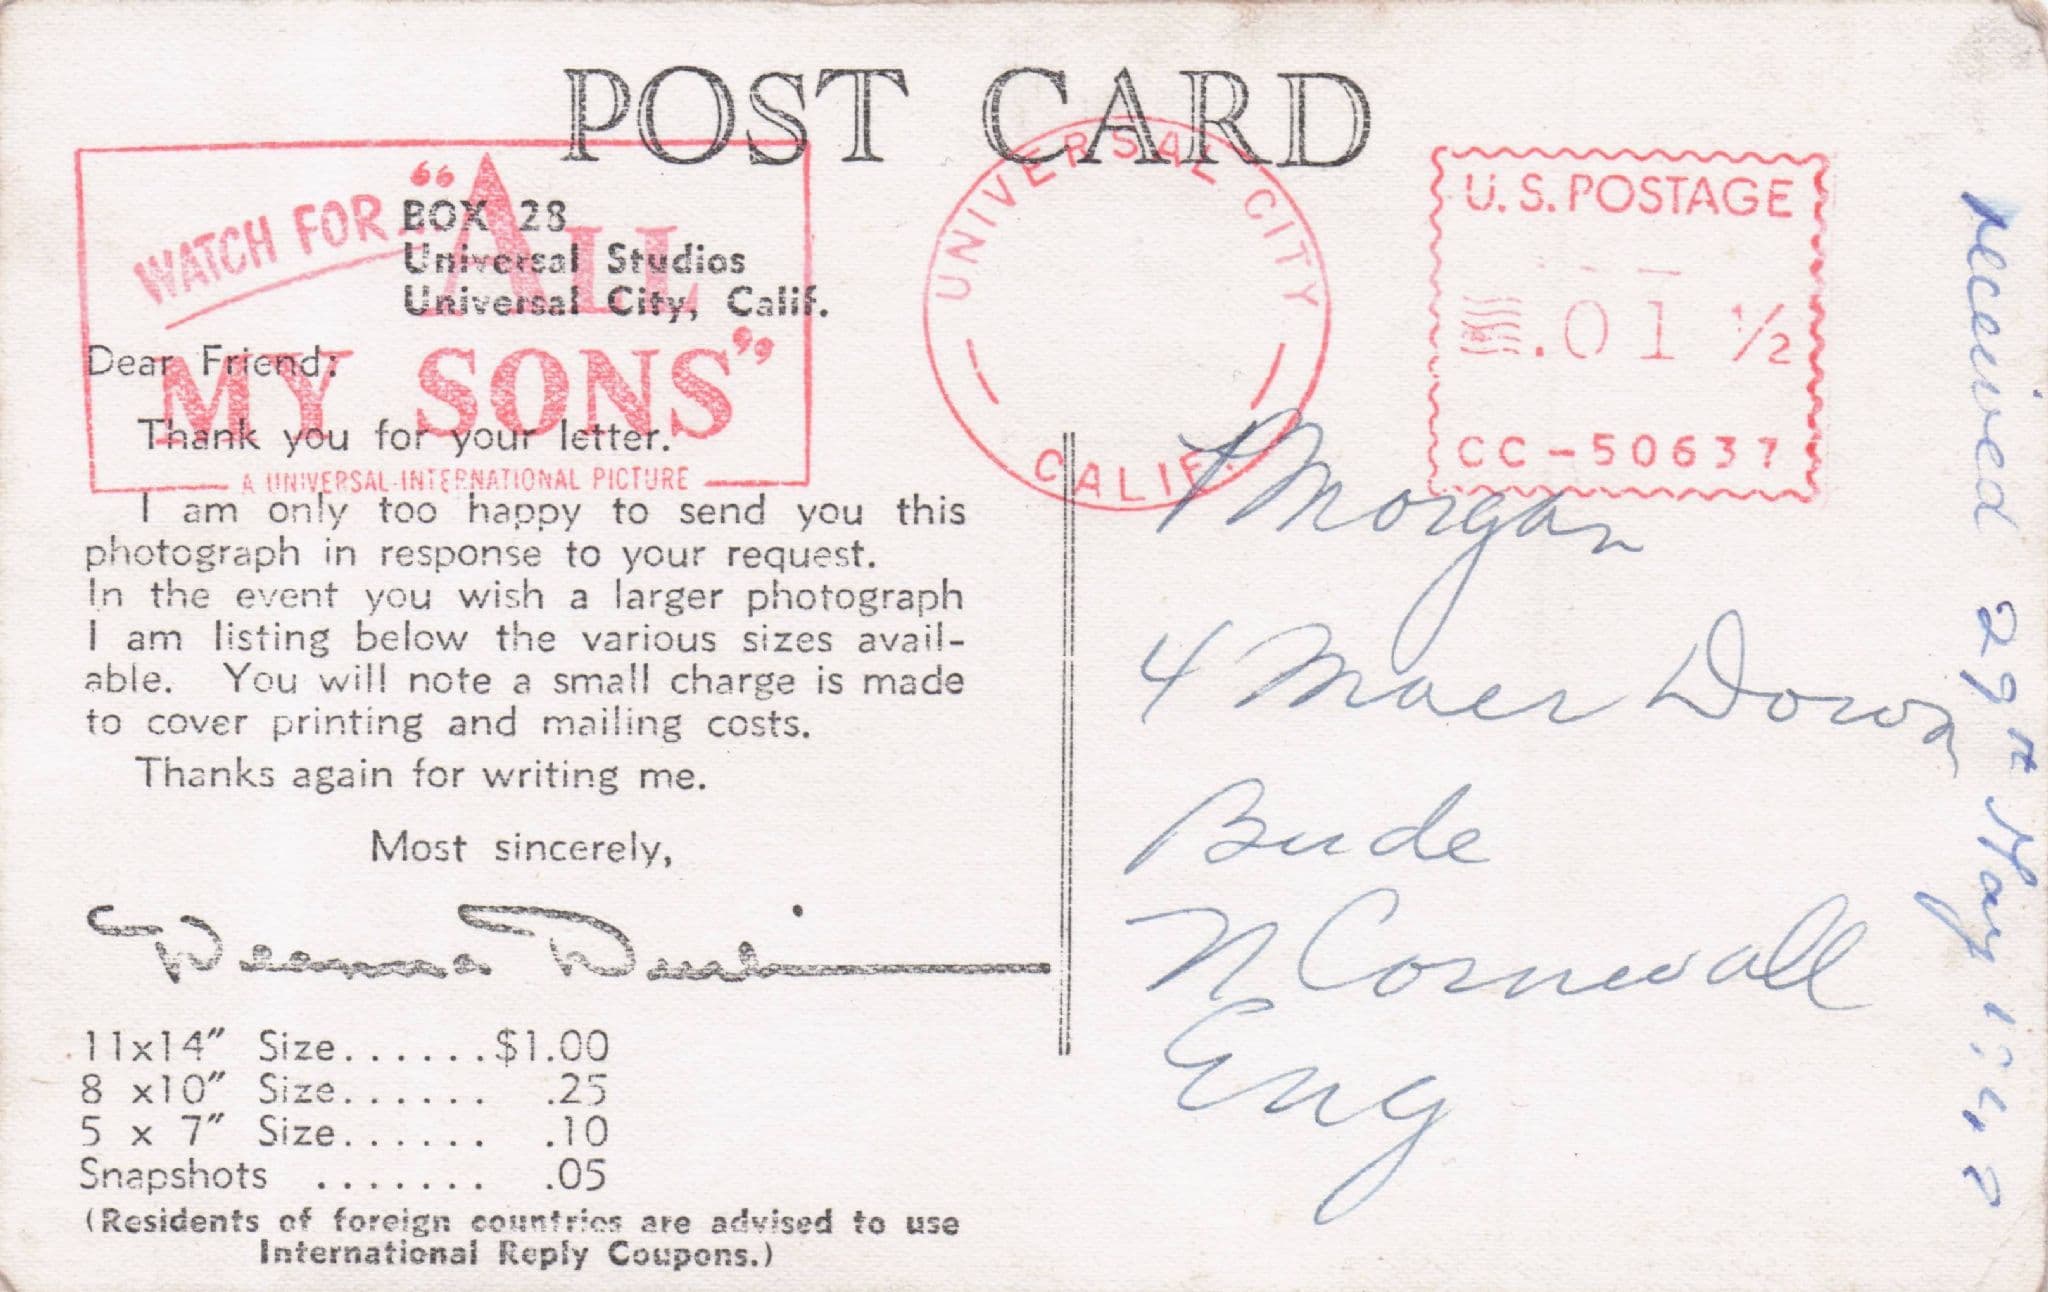 POST CARD
WATCH FOR "ALL
MY SONS"
A UNIVERSAL-INTERNATIONAL PICTURE
UNIVERSAL CITY
CALIF.
U.S. POSTAGE
.01 ½
CC-50637
BOX 28
Universal Studios
Universal City, Calif.
Dear Friend:
Thank you for your letter.
I am only too happy to send you this
photograph in response to your request.
In the event you wish a larger photograph
I am listing below the various sizes avail-
able. You will note a small charge is made
to cover printing and mailing costs.
Thanks again for writing me.
Most sincerely,
Deanna Durbin
11x14" Size......$1.00
8 x10" Size...... .25
5 x 7" Size...... .10
Snapshots ....... .05
(Residents of foreign countries are advised to use
International Reply Coupons.)
Morgan
4 Maer Down
Bude
N Cornwall
Eng
received 29th May